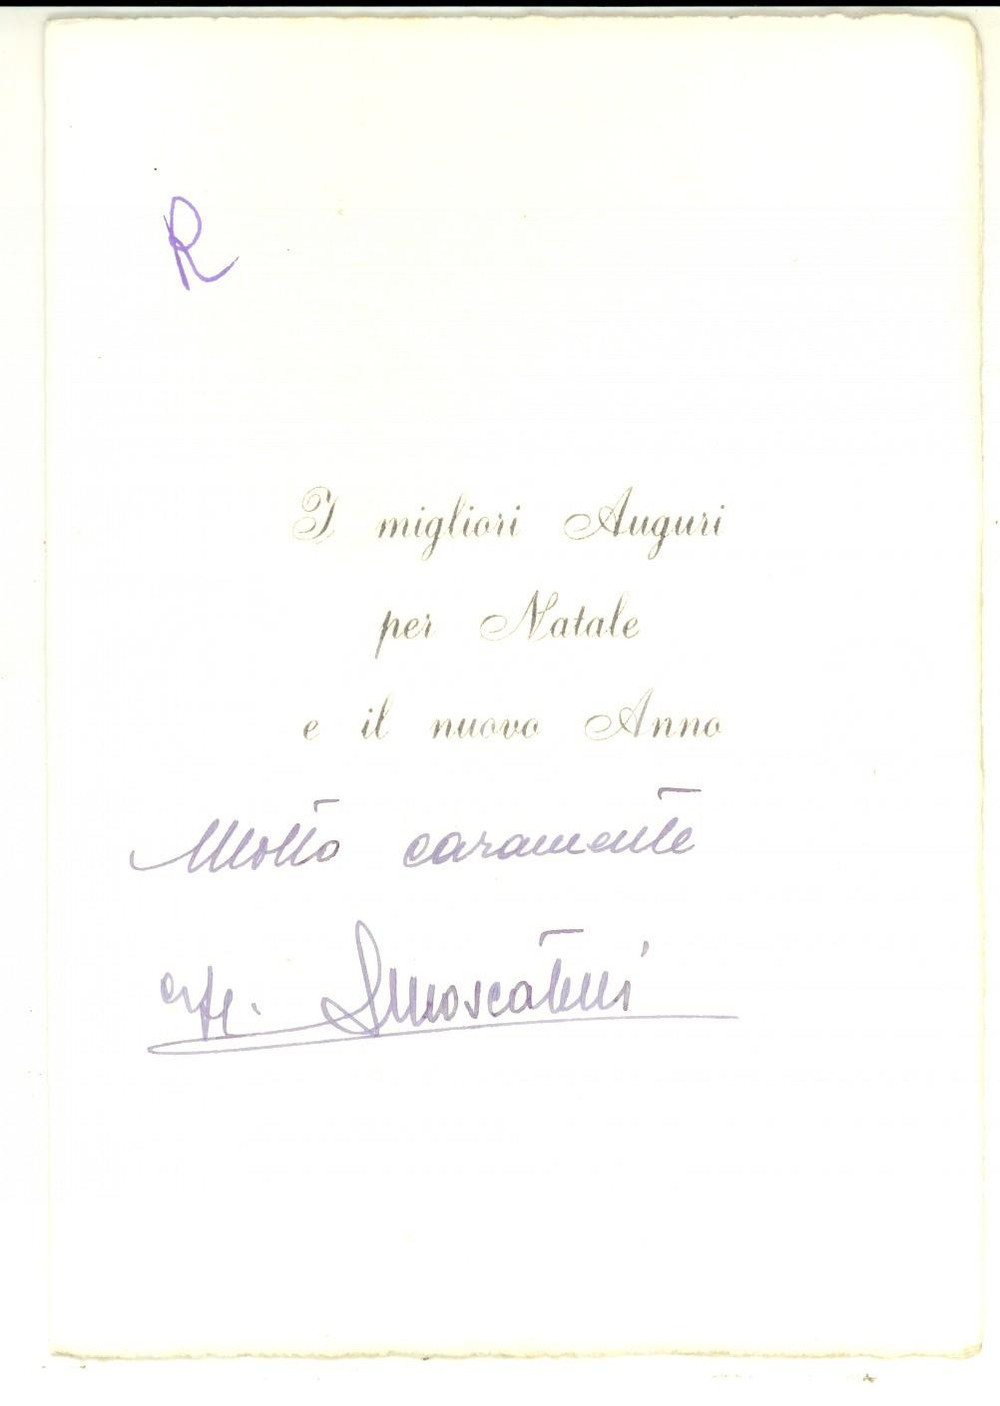 R
I migliori Auguri
per Natale
e il nuovo Anno
Molto caramente
Moscatelli